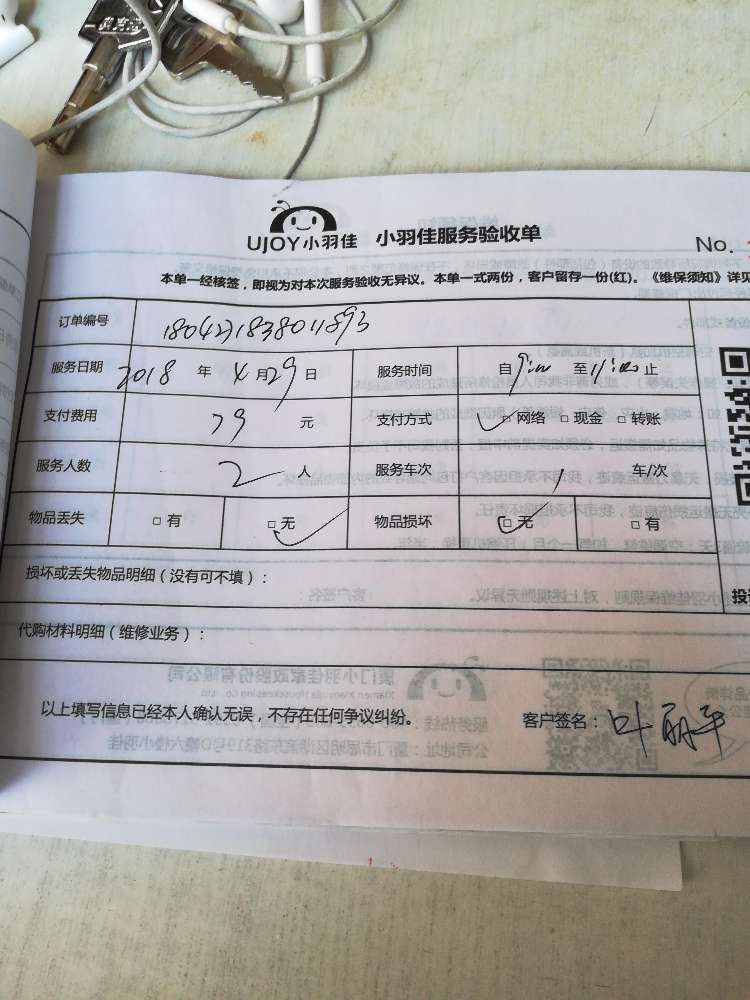 UJOY小羽佳 小羽佳服务验收单
No.
本单一经核签，即视为对本次服务验收无异议。本单一式两份，客户留存一份(红)。《维保须知》详见
订单编号 180421838011893
服务日期 2018 年 4 月 29 日 服务时间 自 9:00 至 11:00 止
支付费用 79 元 支付方式 ☑网络 □现金 □转账
服务人数 2 人 服务车次 车/次
物品丢失 □有 ☑无 物品损坏 ☑无 □有
损坏或丢失物品明细（没有可不填）：
代购材料明细（维修业务）：
以上填写信息已经本人确认无误，不存在任何争议纠纷。 客户签名：叶丽平